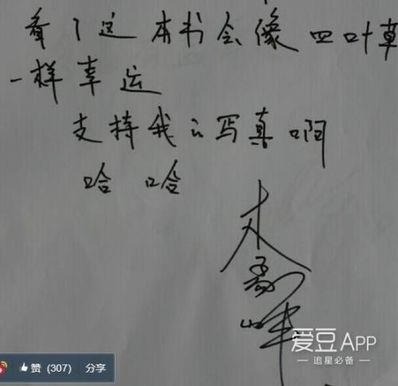 看了这本书会像四叶草
一样幸运
支持我的写真啊
哈哈
爱豆APP
追星必备
赞 (307) 分享